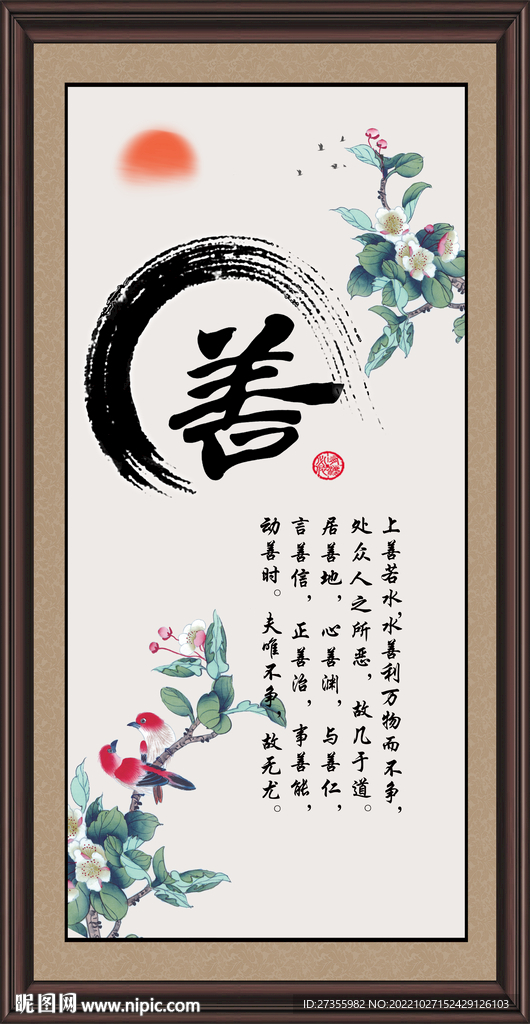 善
上善若水，水善利万物而不争，
处众人之所恶，故几于道。
居善地，心善渊，与善仁，
言善信，正善治，事善能，
动善时。夫唯不争，故无尤。
昵图网 www.nipic.com
ID:27355982 NO:20221027152429126103